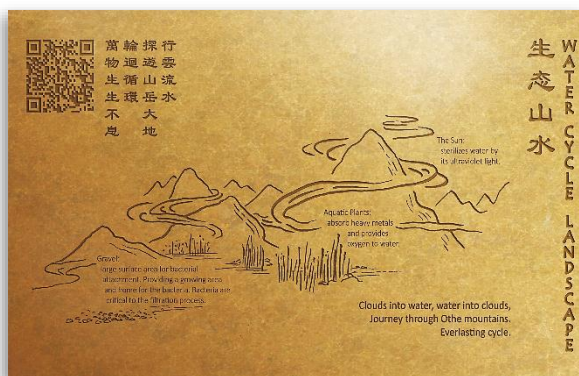 WATER CYCLE LANDSCAPE
生态山水
行雲流水
探遊山岳大地
輪迴循環
萬物生生不息
The Sun:
sterilizes water by
its ultraviolet light.
Aquatic Plants:
absorb heavy metals
and provides
oxygen to water
Gravel:
large surface area for bacterial
attachment. Providing a growing area
and home for the bacteria. Bacteria are
critical to the filtration process.
Clouds into water, water into clouds,
Journey through Othe mountains.
Everlasting cycle.